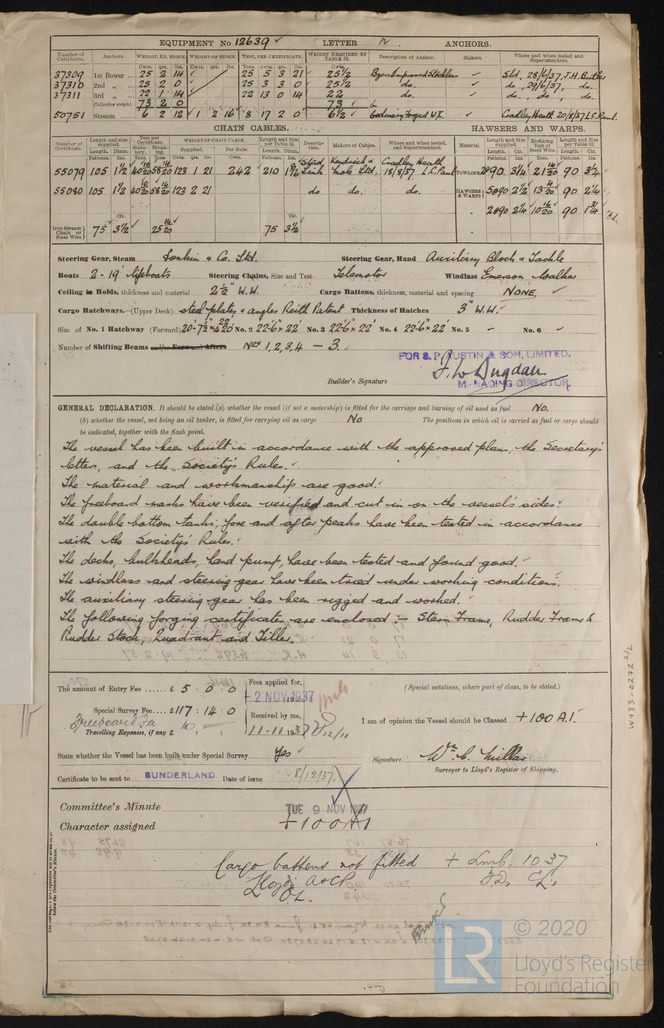 EQUIPMENT No 12639 LETTER ANCHORS.
Number of Certificate. Anchors. WEIGHT, EX. STOCK. WEIGHT OF STOCK. TEST, PER CERTIFICATE. WEIGHT REQUIRED BY TABLE 53. Description of Anchor. Makers. Where and when tested and Superintendent.
37309 1st Bower 25 2 14 25 5 3 21 25½ Byers Improved Stockless Sld, 28/6/37, J.H. Butler
37310 2nd 25 2 0 25 3 3 0 25½ do. do, 29/6/37, do.
37311 3rd 22 1 14 22 13 0 14 22 do. do, do, do.
Collective weight. 73 2 0 73
50751 Stream 6 2 12 1 2 16 8 17 2 0 6½ Ordinary Forged W.I. Cradley Heath 20/8/37 L.S. Paul
CHAIN CABLES. HAWSERS AND WARPS.
Number of Certificate. Length and size supplied. Test per Certificate. WEIGHT OF CHAIN CABLE. Length and Size per Table 53. Description. Makers of Cables. Where and when tested, and Superintendent. Material Length and Size supplied. Breaking Test of Steel Wire. Length and Size per Table 53.
55079 105 1½ 123 1 21 242 210 1½ Stud Link Kendrick & Mole Ltd. Cradley Heath 18/8/37 L.S. Paul TOWLINES 90 3¼ 90 3¼
55080 105 1½ 123 2 21 do. do. do. HAWSERS & WARPS 90 2½ 90 2¼
2@90 2¼ 90 1¾
Iron Stream Chain or Steel Wire 75 3½ 75 3½
Steering Gear, Steam Donkin & Co. Ltd. Steering Gear, Hand Auxiliary Block & Tackle
Boats 2 - 19' lifeboats Steering Chains, Size and Test Telemotor Windlass Emerson Walker
Ceiling in Holds, thickness and material 2½" W.W. Cargo Battens, thickness, material and spacing NONE.
Cargo Hatchways. (Upper Deck) steel plates & angles Reith Patent Thickness of Hatches 3" W.W.
Size of No. 1 Hatchway (Forward) No. 2 22'6" x 22' No. 3 22'6" x 22' No. 4 22'6" x 22' No. 5 - No. 6
Number of Shifting Beams and/or Fore and Afters Nos 1, 2, 3, 4 — 3.
FOR S. P. AUSTIN & SON, LIMITED.
Builder's Signature
MANAGING DIRECTOR.
GENERAL DECLARATION. It should be stated (a) whether the vessel (if not a motorship) is fitted for the carriage and burning of oil used as fuel No.
(b) whether the vessel, not being an oil tanker, is fitted for carrying oil as cargo No The positions in which oil is carried as fuel or cargo should
be indicated, together with the flash point.
The vessel has been built in accordance with the approved plans, the Secretary's
letters, and the Society's Rules.
The material and workmanship are good.
The freeboard marks have been verified and cut in on the vessel's sides.
The double bottom tanks, fore and after peaks have been tested in accordance
with the Society's Rules.
The decks, bulkheads, hand pump, have been tested and found good.
The windlass and steering gear have been tried under working conditions.
The auxiliary steering gear has been rigged and worked.
The following forging certificates are enclosed :- Stern Frame, Rudder Frame &
Rudder Stock, Quadrant and Tiller.
The amount of Entry Fee £ 5 : 0 : 0 Fees applied for, (Special notations, where part of class, to be stated.)
-2 NOV 1937
Special Survey Fee £117 : 14 : 0
Freeboard Fee 10 Received by me,
Travelling Expenses, if any £ 11.11.1937 I am of opinion the Vessel should be Classed +100A.1.
State whether the Vessel has been built under Special Survey Yes Signature Wm. C. Millar
Surveyor to Lloyd's Register of Shipping.
Certificate to be sent to SUNDERLAND. Date of issue 8/12/37.
Committee's Minute TUE 9 NOV 1937
Character assigned +100A1
Cargo battens not fitted + LMC 10.37
Lloyd's A&CP. F.D. CL.
OL.
W933-0272 2/2
© 2020
LR
Lloyd's Register
Foundation